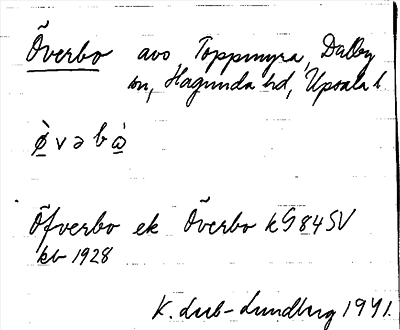 Överbo avs Toppmyra, Dalby
sn, Hagunda hd, Upsala l
ø̀vəbὼ
Öfverbo ek Överbo kG 84 SV
kb 1928
K. Lub-Lundberg 1941.